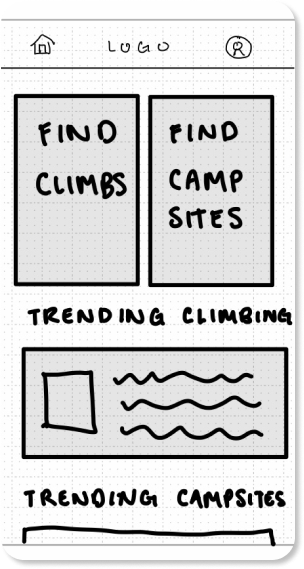 LOGO
R
FIND
CLIMBS
FIND
CAMP
SITES
TRENDING CLIMBING
TRENDING CAMPSITES